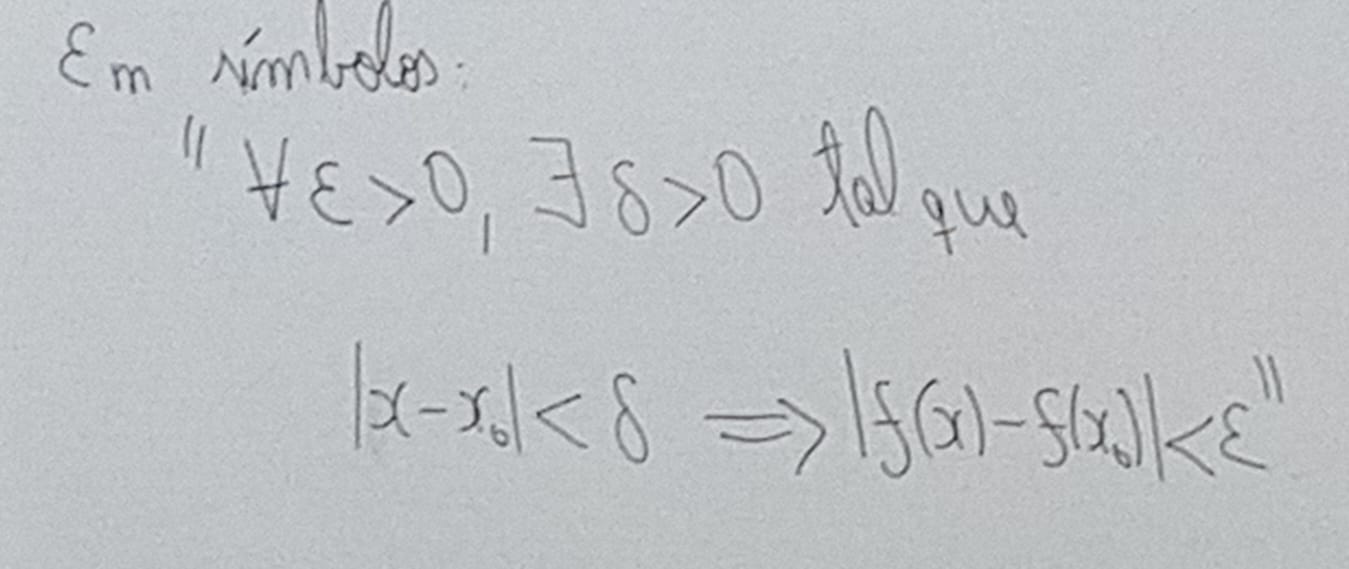 Em símbolos:
"∀ε>0, ∃δ>0 tal que
|x-x₀|<δ ⟹ |f(x)-f(x₀)|<ε"